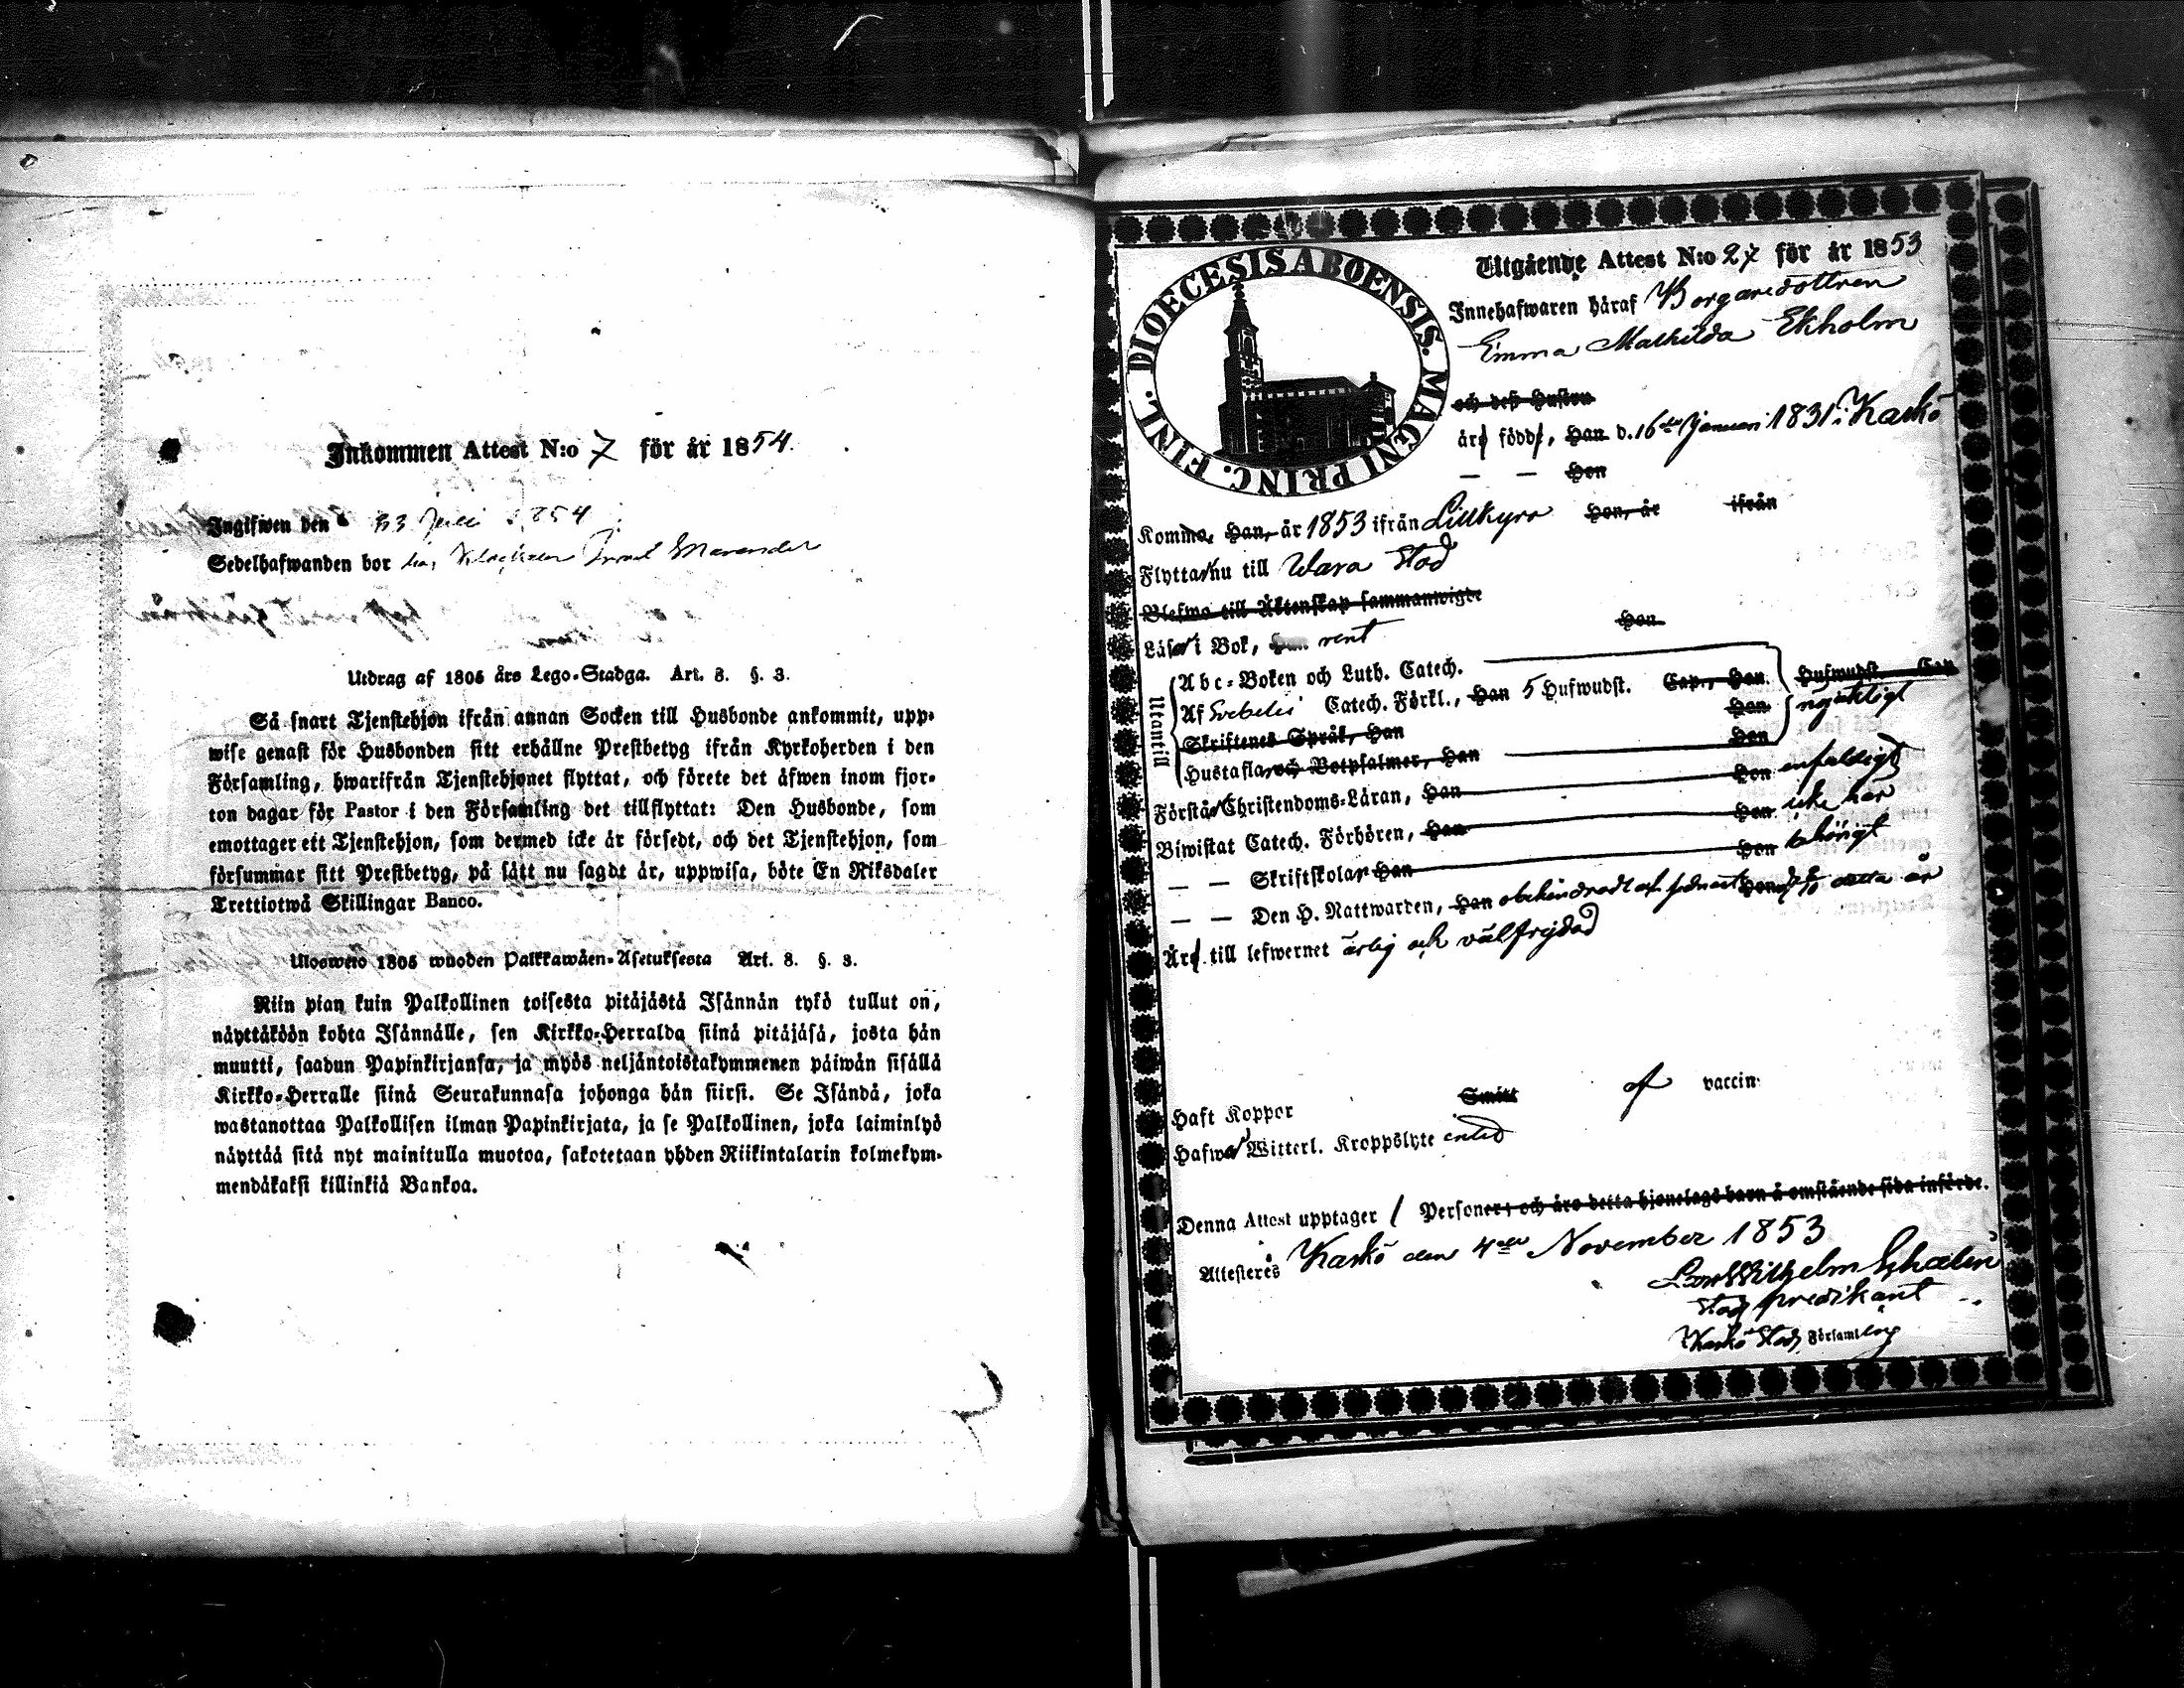 Inkommen Attest N:o 7 för år 1854.
Ingifwen den Juli 1854
Sedelhafwanden bor
Utdrag af 1805 års Lego-Stadga. Art. 8. §. 3.
Så snart Tjenstehjon ifrån annan Socken till Husbonde ankommit, upp-
wise genast för Husbonden sitt erhållne Prestbetyg ifrån Kyrkoherden i den
Församling, hwarifrån Tjenstehjonet flyttat, och förete det äfwen inom fjor-
ton dagar för Pastor i den Församling det tillflyttat: Den Husbonde, som
emottager ett Tjenstehjon, som dermed icke är försedt, och det Tjenstehjon, som
försummar sitt Prestbetyg, på sätt nu sagdt är, uppwisa, böte En Riksdaler
Trettiotwå Skillingar Banco.
Ulosweto 1805 wuoden Palkkawäen-Asetuksesta Art. 8. §. 3.
Niin pian kuin Palkollinen toisesta pitäjästä Isännän tykö tullut on,
näyttäköön kohta Isännälle, sen Kirkko-Herralda siinä pitäjäsä, josta hän
muutti, saadun Papinkirjansa, ja myös neljäntoistakymmenen päiwän sisällä
Kirkko-Herralle siinä Seurakunnasa johonga hän siirsi. Se Isändä, joka
wastanottaa Palkollisen ilman Papinkirjata, ja se Palkollinen, joka laiminlyö
näyttää sitä nyt mainitulla muotoa, sakotetaan yhden Riikintalarin kolmekym-
mendäkaksi killinkiä Bankoa.
DIOECESIS ABOENSIS. MAGNI PRINC. FINL.
Utgående Attest N:o 27 för år 1853
Innehafwaren häraf Borgaredottren
Emma Mathilda Ekholm
och deß Hustru
är född, Han d. 16de Januari 1831 i Kaskö
— — Hon
Komna, Han, år 1853 ifrån Lillkyro Hon, år ifrån
Flyttar nu till Wasa Stad
Blefwo till Äktenskap sammanwigde
Läser i Bok, Han rent Hon
Utantill
Abc-Boken och Luth. Catech.
Af Svebelii Catech. Förkl., Han 5 Hufwudst. Cap., Hon Hufwudst. Cap
Skriftenes Språk, Han Hon nöjaktligt
Hustaflan och Botpsalmer, Han Hon
Förstår Christendoms-Läran, Han Hon enfaldigt
Biwistat Catech. Förhören, Han Hon icke här
— — Skriftskolan Han Hon behörigt
— — Den H. Nattwarden, Han obehindradt och sednast Hon detta år
Är till lefwernet ärlig och välfrejdad
Haft Koppor Smitt af vaccin
Hafwer Witterl. Kroppslyte intet
Denna Attest upptager 1 Personer; och äro detta hjonelags barn å omstående sida införde.
Attesteres Kaskö den 4de November 1853
Wilhelm
Stads predikant
Kaskö Stads Församling